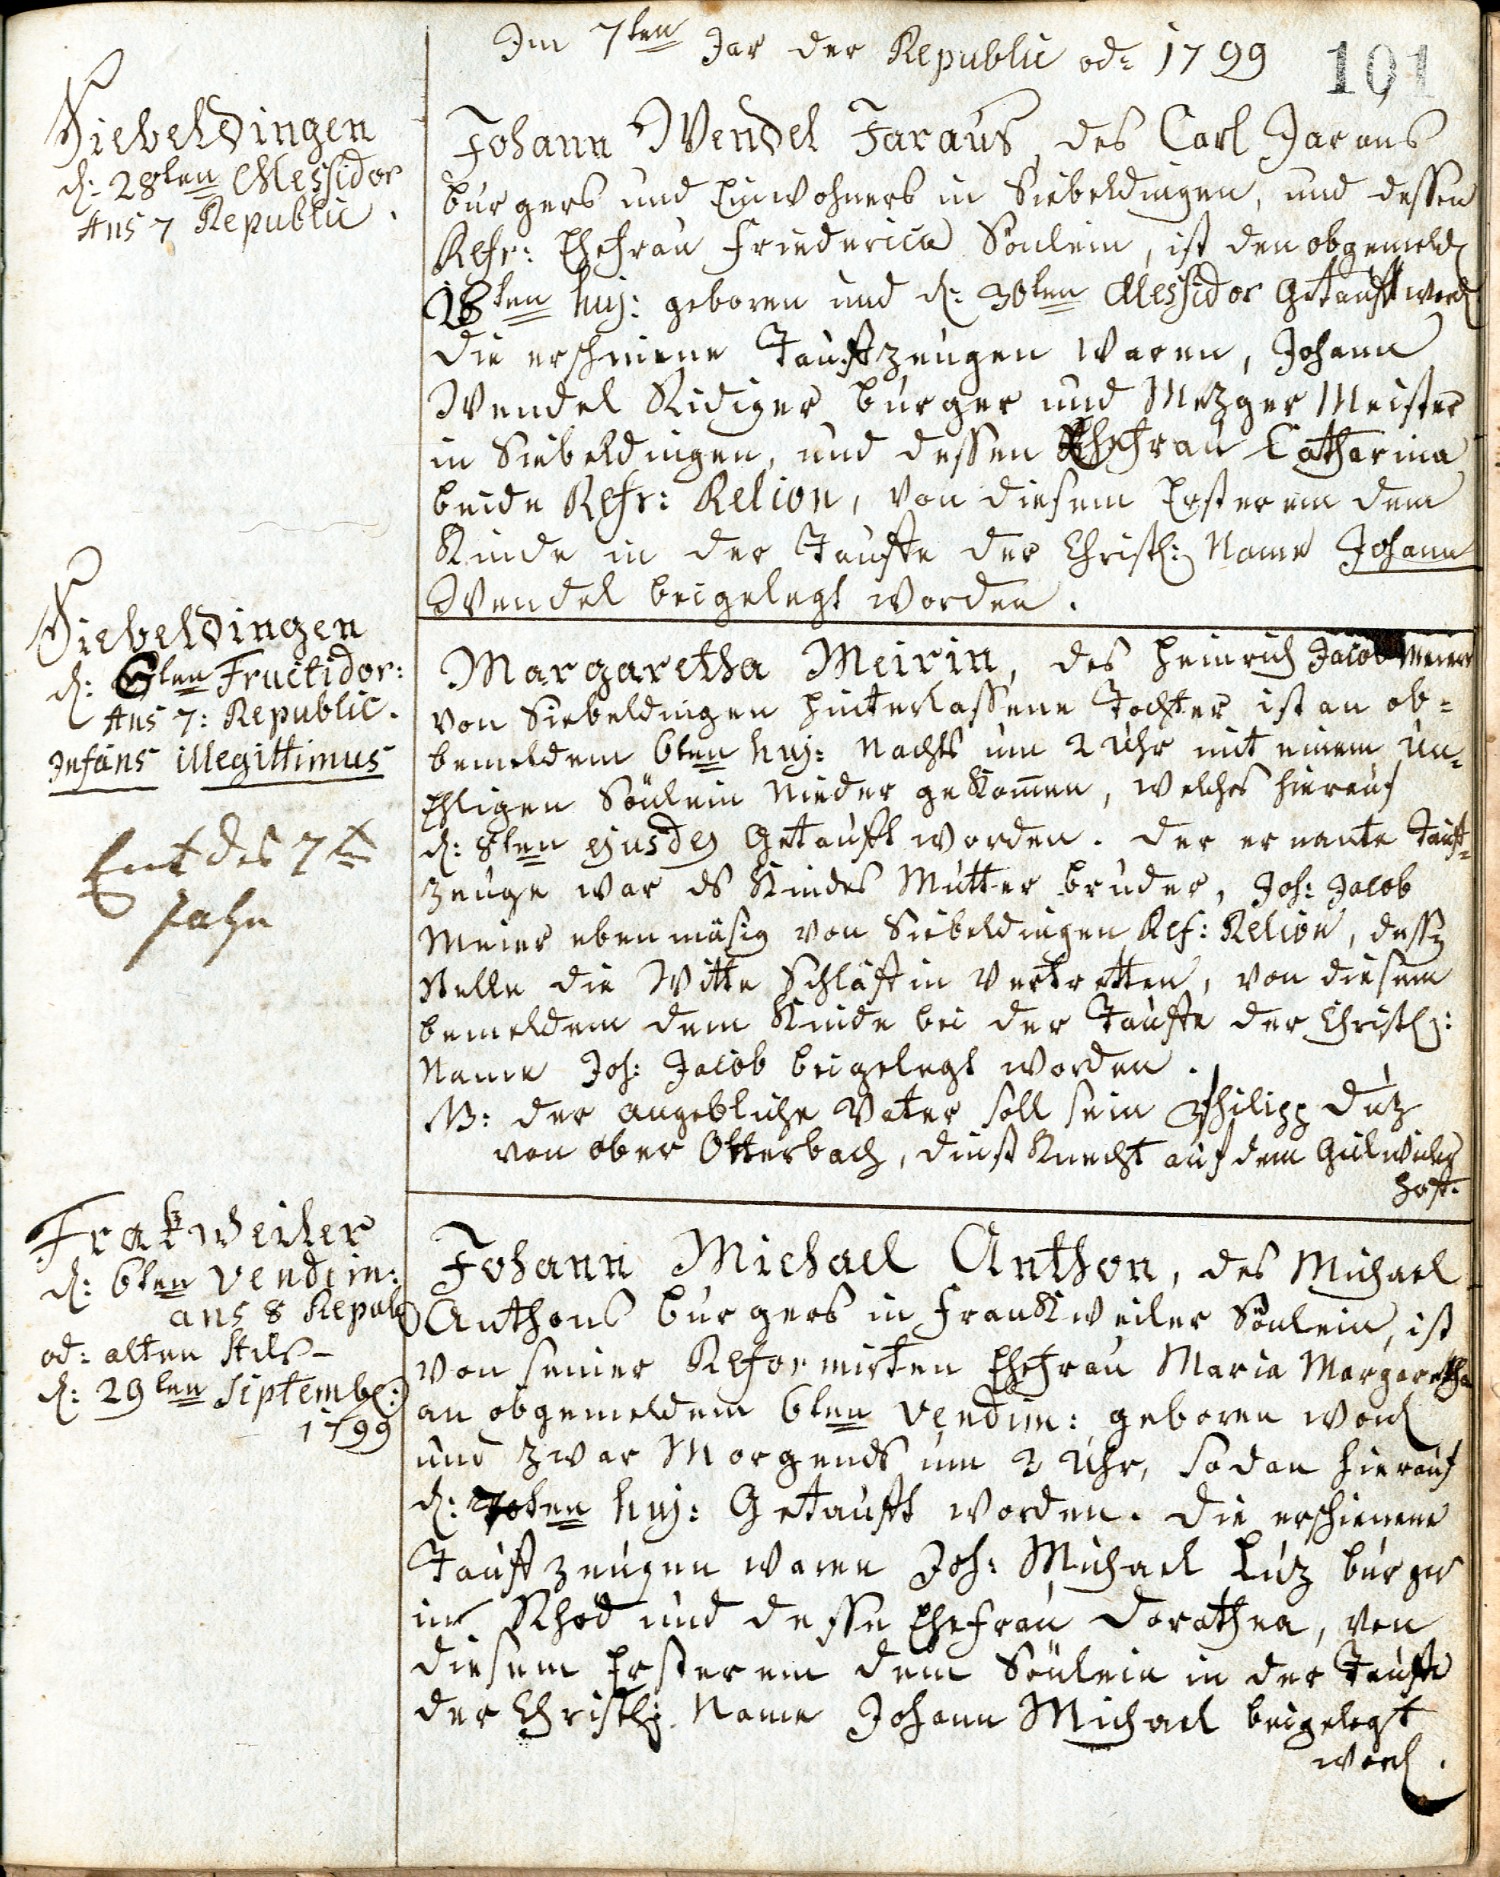 Im 7ten Jar der Republic od: 1799
101
Siebeldingen
d: 28ten Messidor
Ans 7 Republic.
Johann Wendel Faraus, des Carl Faraus
burgers und Einwohners in Siebeldingen, und dessen
Refr: Ehefrau Friederica Sönlein, ist den obgemeld
28ten huj: geboren und d: 30ten Messidor Getauft word
die erschinene Taufzeugen waren, Johann
Wendel Ridiger burger und Mezger Meister
in Siebeldingen, und dessen Ehefrau Catharina
beide Refr: Relion, von diesem Ersterem dem
Kinde in der Taufte der Christl: Name Johann
Wendel beigelegt worden.
Siebeldingen
d: 6ten Fructidor:
Ans 7: Republic.
Infans illegittimus
Ent des 7t
Jahr
Margaretha Meirin, des Heinrich Jacob Meiers
von Siebeldingen hinterlassene Tochter ist an ob=
bemeldem 6ten huj: Nachts um 2 Uhr mit einem Un=
Ehligen Sönlein Nieder gekomen, welches hierauf
d: 8ten ejusdem Getauft worden. der ernante Tauft=
zeuge war ds Kindes Mutter bruder, Joh: Jacob
Meier ebenmäsig von Siebeldingen Ref: Relion, dessen
Stelle die Witte Schläftin Vertretten, von diesem
bemeldem dem Kinde bei der Taufte der Christl:
Name Joh: Jacob beigelegt worden.
NB: der angebliche Vater soll sein Philipp Dutz
von ober Otterbach, dinst Knecht auf dem
Hoft.
Frakweiler
d: 6ten Vendem:
ans 8 Republ
od: alten Stils –
d: 29ten Septemb:
1799
Johann Michael Anthon, des Michael
Anthons burgers in Frankweiler Sönlein, ist
von seiner Reformirten Ehefrau Maria Margaretha
an obgemeldem 6ten Vendim: geboren word
und zwar Morgends um 2 Uhr, sodan hierauf
d: huj: Getauft worden. die erschienene
Taufzeugen waren Joh: Michael Luz burger
in Rhod und desse Ehefrau Dorathea, von
diesem Ersterem dem Sönlein in der Taufte
der Christl: Name Johann Michael beigelegt
word.